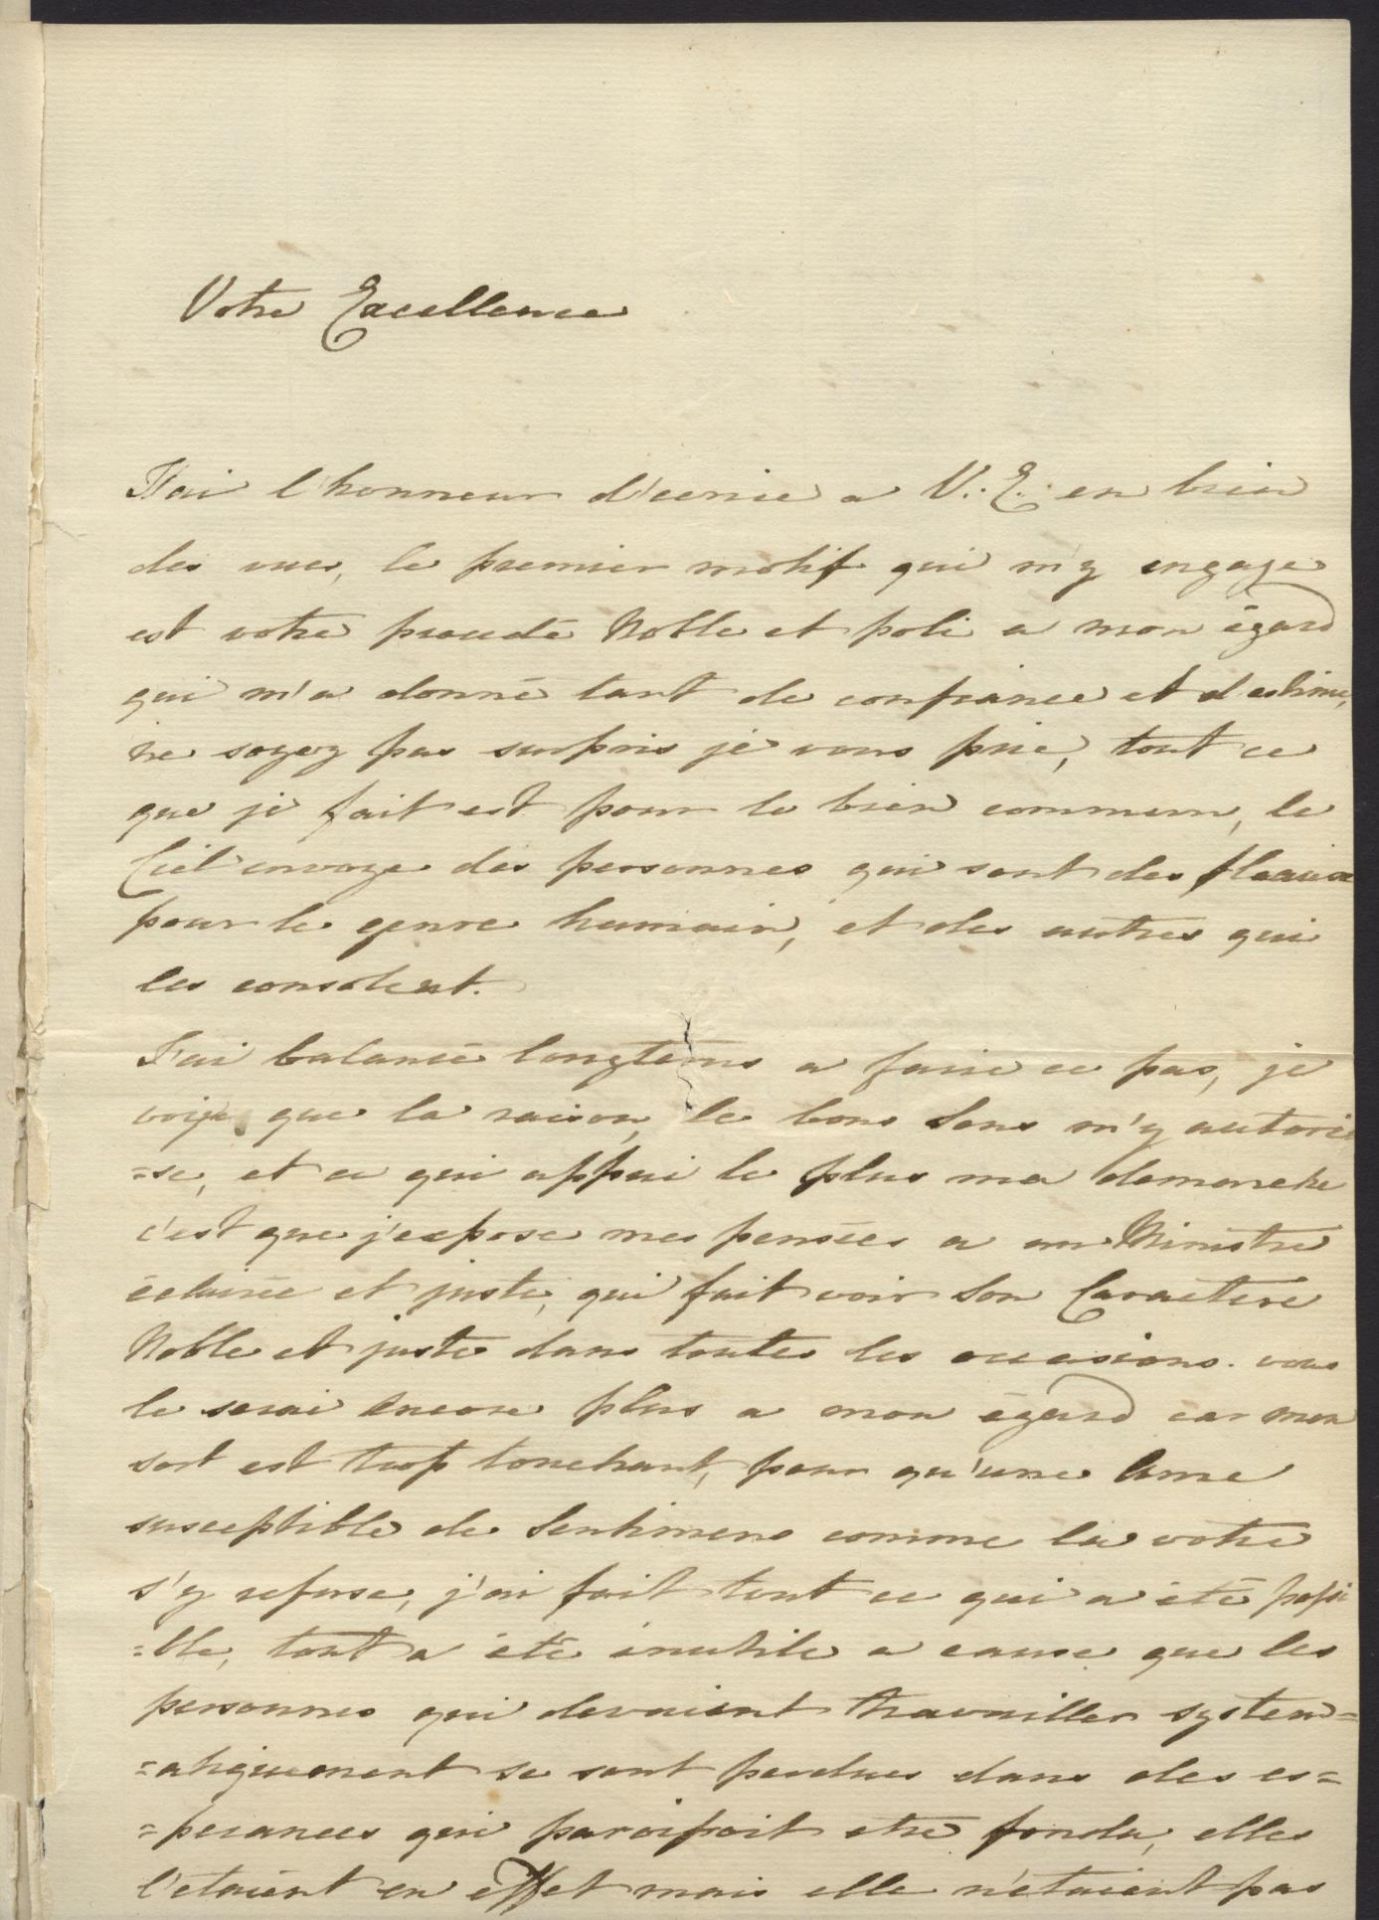 Votre Excellence
J'ai l'honneur d'ecrire a V: E: en bien
des vues, le premier motif qui m'y engage
est votre procedé Noble et poli a mon égard
qui m'a donné tant de confiance et d'estime,
ne soyez pas surpris je vous prie, tout ce
que je fait est pour le bien commun, le
Ciel envoye des personnes qui sont des fleaux
pour le genre humain, et des autres qui
les consolent.
J'ai balancé longtems a faire ce pas, je
que la raison, le bons sens m'y autori
=se, et ce qui appui le plus ma demarche
c'est que j'expose mes pensées a un Ministre
éclairée et juste, qui fait voir son Caractere
Noble et juste dans toutes les occasions. vous
le serai encore plus a mon égard car mon
sort est trop touchant, pour qu'une ame
susceptible de sentimens comme la votre
s'y refuse, j'ai fait tout ce qui a été possi
=ble, tout a été inutile a cause que les
personnes qui devaient travailler system=
=atiquement se sont perdues dans des es=
=perances qui paroissoit etre fondu, elles
l'etaient en effet mais elle n'etaient pas